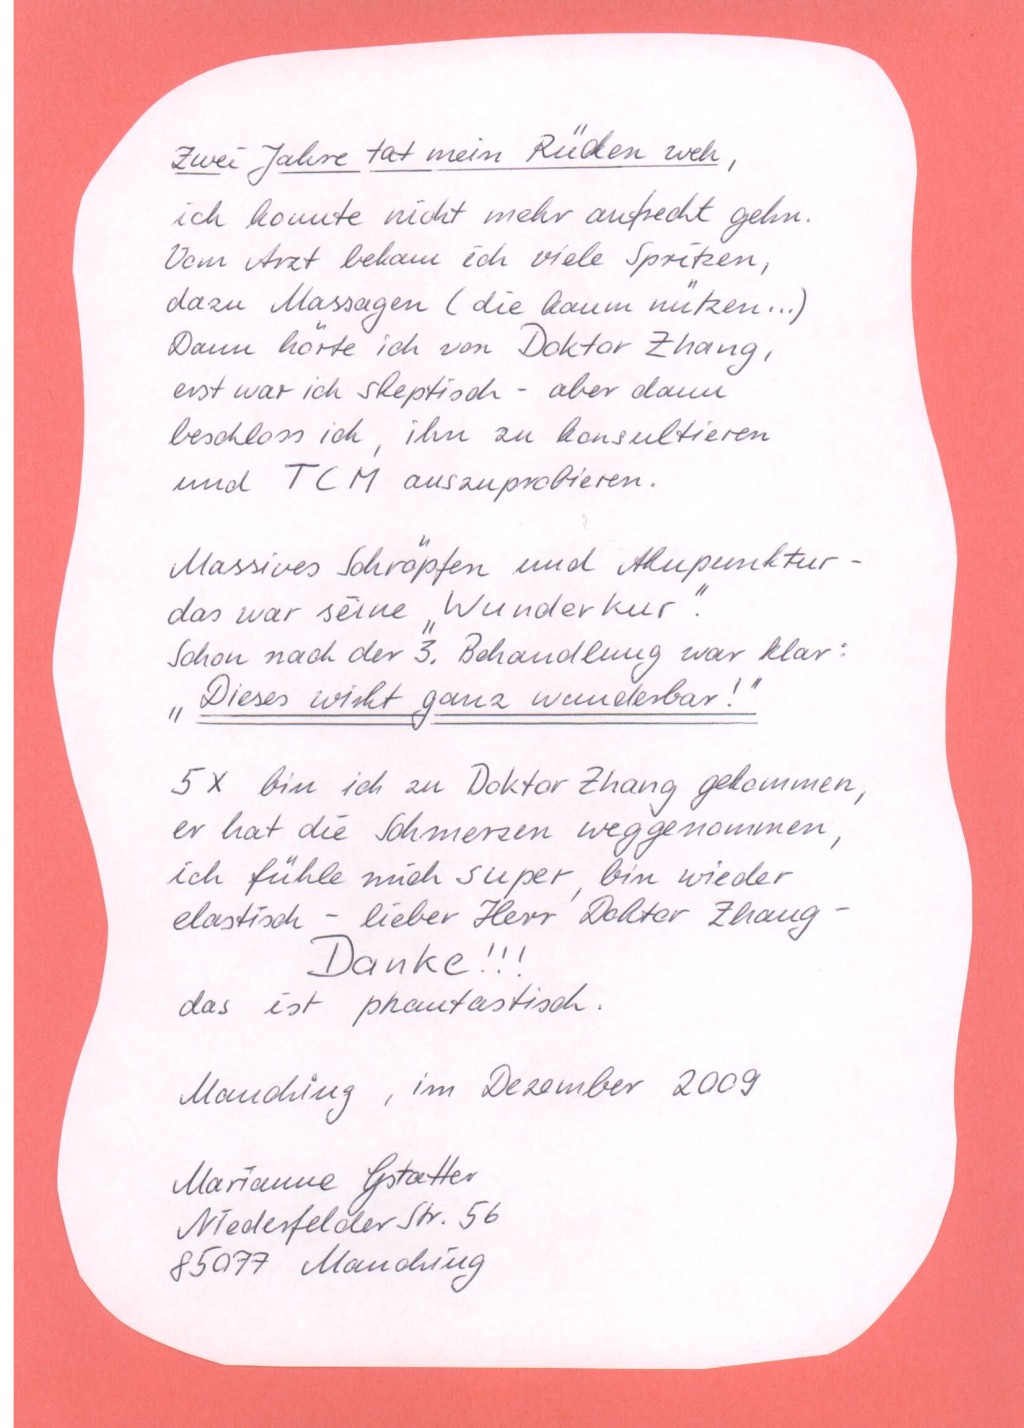 Zwei Jahre tat mein Rücken weh,
ich konnte nicht mehr aufrecht gehn.
Vom Arzt bekam ich viele Spritzen,
dazu Massagen (die kaum nützen...)
Dann hörte ich von Doktor Zhang,
erst war ich skeptisch - aber dann
beschloss ich, ihn zu konsultieren
und TCM auszuprobieren.
Massives Schröpfen und Akupunktur -
das war seine „Wunderkur".
Schon nach der 3. Behandlung war klar:
„Dieses wirkt ganz wunderbar!"
5x bin ich zu Doktor Zhang gekommen,
er hat die Schmerzen weggenommen,
ich fühle mich super, bin wieder
elastisch - lieber Herr Doktor Zhang -
Danke!!!
das ist phantastisch.
Manching, im Dezember 2009
Marianne Gstatter
Niederfelder Str. 56
85077 Manching